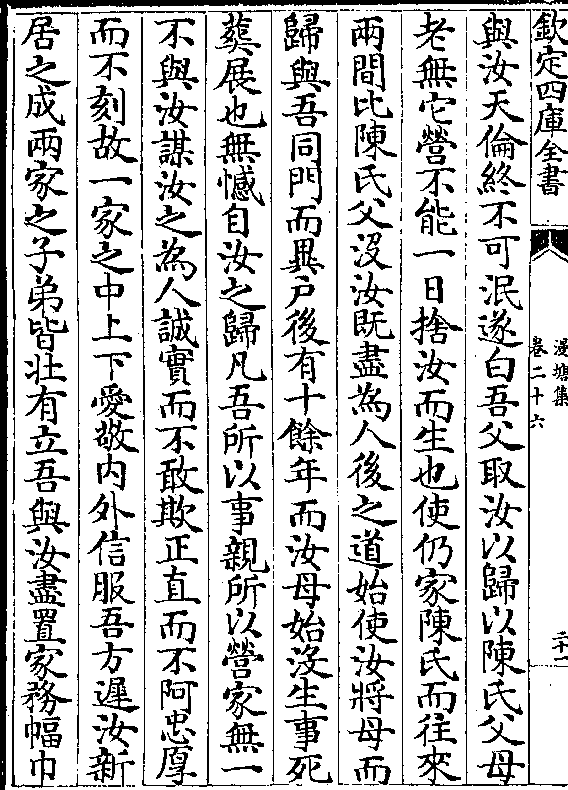 欽定四庫全書
漫塘集
卷二十六
與汝天倫終不可泯遂白吾父取汝以歸以陳氏父母
老無它營不能一日捨汝而生也使仍家陳氏而往來
兩間比陳氏父沒汝既盡為人後之道始使汝將母而
歸與吾同門而異户後有十餘年而汝母始沒生事死
葬展也無憾自汝之歸凡吾所以事親所以營家無一
不與汝謀汝之為人誠實而不敢欺正直而不阿忠厚
而不刻故一家之中上下愛敬内外信服吾方遲汝新
居之成兩家之子弟皆壯有立吾與汝盡置家務幅巾